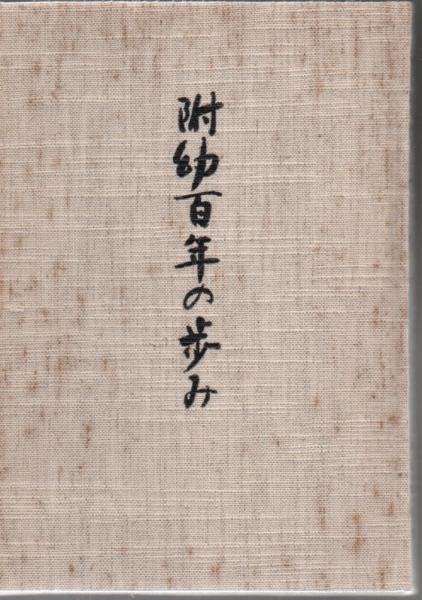 附幼百年の歩み